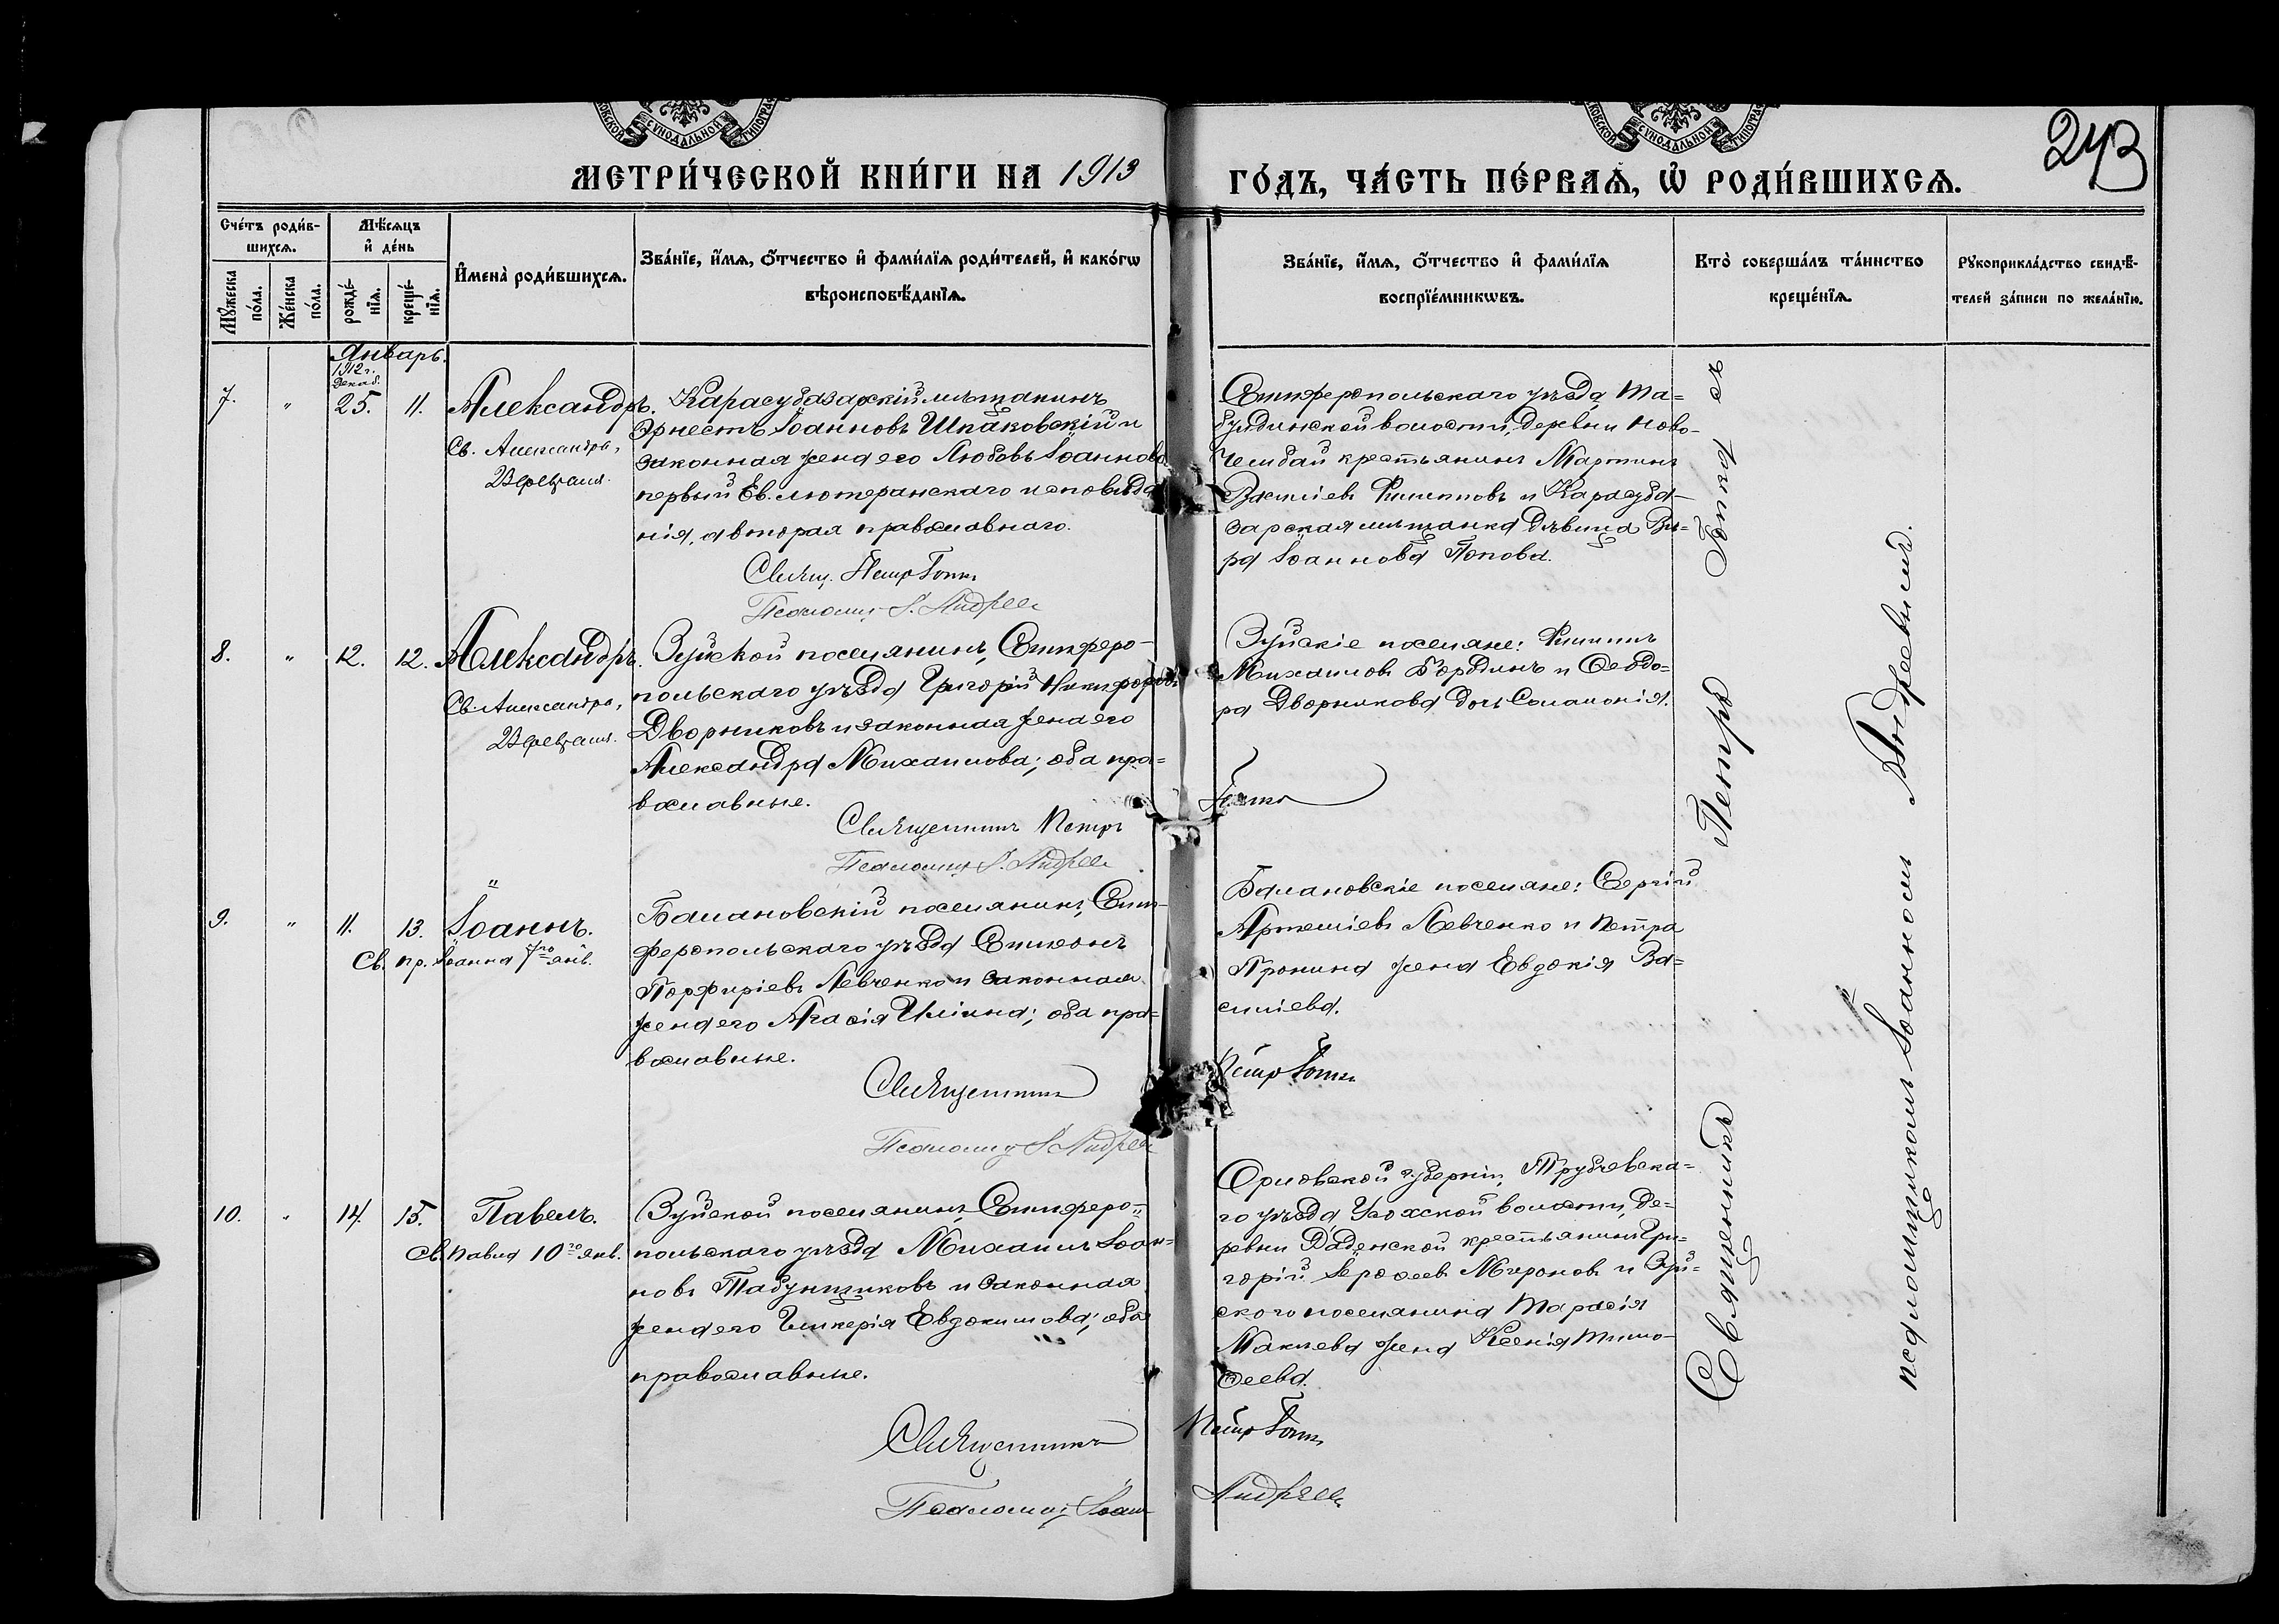 МЕТРИ́ЧЕСКОЙ КНИ́ГИ НА 1913
ГО́ДЪ, ЧА́СТЬ ПЕ́РВАѦ, Ѡ҆ РОДИ́ВШИХСѦ.
243
Сче́тъ роди́в-
шихсѧ.
Мꙋ́жеска по́ла.
Же́нска по́ла.
Мѣ́сѧцъ
и҆ де́нь
рожде́-
нїѧ.
креще́-
нїѧ.
И҆мена̀ роди́вшихсѧ.
Зва́нїе, и҆́мѧ, ѻ҆́тчество и҆ фами́лїѧ роди́телей, и҆ како́гѡ
вѣроисповѣ́данїѧ.
Зва́нїе, и҆́мѧ, ѻ҆́тчество и҆ фами́лїѧ
воспрїе́мникѡвъ.
Кто̀ соверша́лъ та́инство
креще́нїѧ.
Рꙋкоприкла́дство свидѣ́-
телей за́писи по жела́нїю.
Январь.
1912 г.
Декаб.
7. " 25. 11. Александръ.
Св. Александра,
23 февраля.
Карасубазарскій мѣщанинъ
Эрнестъ Іоанновъ Шпаковскій и
законная жена его Любовь Іоаннова
первый Ев. лютеранскаго исповѣда
нія, а вторая православнаго.
Свящ. Петръ Гопкъ
Псаломщ. І. Андреев
Симферопольскаго уѣзда, Та=
булдинской волости, деревни Ново-
Челебай крестьянинъ Мартинъ
Василіевъ Филипповъ и Карасуба-
зарская мѣщанка дѣвица Вѣ=
ра Іоаннова Попова.
8. " 12. 12. Александръ.
Св. Александра,
23 февраля.
Зуйской поселянинъ, Симферо-
польскаго уѣзда Григорій Никифоровъ
Дворниковъ и законная жена его
Александра Михаилова; оба пра=
вославные.
Священникъ Петръ Гопкъ
Псаломщ. І. Андреев
Зуйскіе поселяне: Филиппъ
Михаиловъ Бородинъ и Ѳеодо=
ра Дворникова дочь Соломонія.
9. " 11. 13. Іоаннъ.
Св. пр. Іоанна 7го янв.
Балановскій поселянинъ, Сим-
феропольскаго уѣзда Симеонъ
Порфиріевъ Левченко и законная
жена его Агасія Иліина; оба пра=
вославные.
Священникъ Петръ Гопкъ
Псаломщ. І. Андреев
Балановскіе поселяне: Сергій
Артеміевъ Левченко и Петра
Пронина жена Евдокія Ва=
силіева.
10. " 14. 15. Павелъ.
Св. Павла 10го янв.
Зуйской поселянинъ, Симферо-
польскаго уѣзда Михаилъ Іоан=
новъ Табунщиковъ и законная
жена его Гликерія Евдокимова; оба
православные.
Священникъ Петръ Гопкъ
Псаломщ. Іоан Андреев
Орловской губерніи, Трубчевска=
го уѣзда, Усохской волости, де=
ревни крестьянинъ Гри=
горій Мироновъ и Зуй=
ского поселянина Тарасія
Макиева жена Ксенія Тимо-
ѳеева.
Священникъ Петръ Гопкъ съ
псаломщикомъ Іоанномъ Андреевымъ.